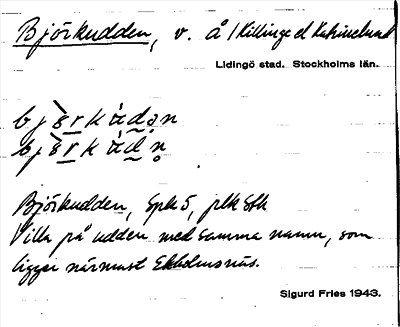 Björkudden, v. å / Killinge el Katrinelund
Lidingö stad. Stockholms län.
Björkudden, Spk 5, plk Sthlm
Villa på udden med samma namn, som
ligger närmast Ekholmsnäs.
Sigurd Fries 1943.